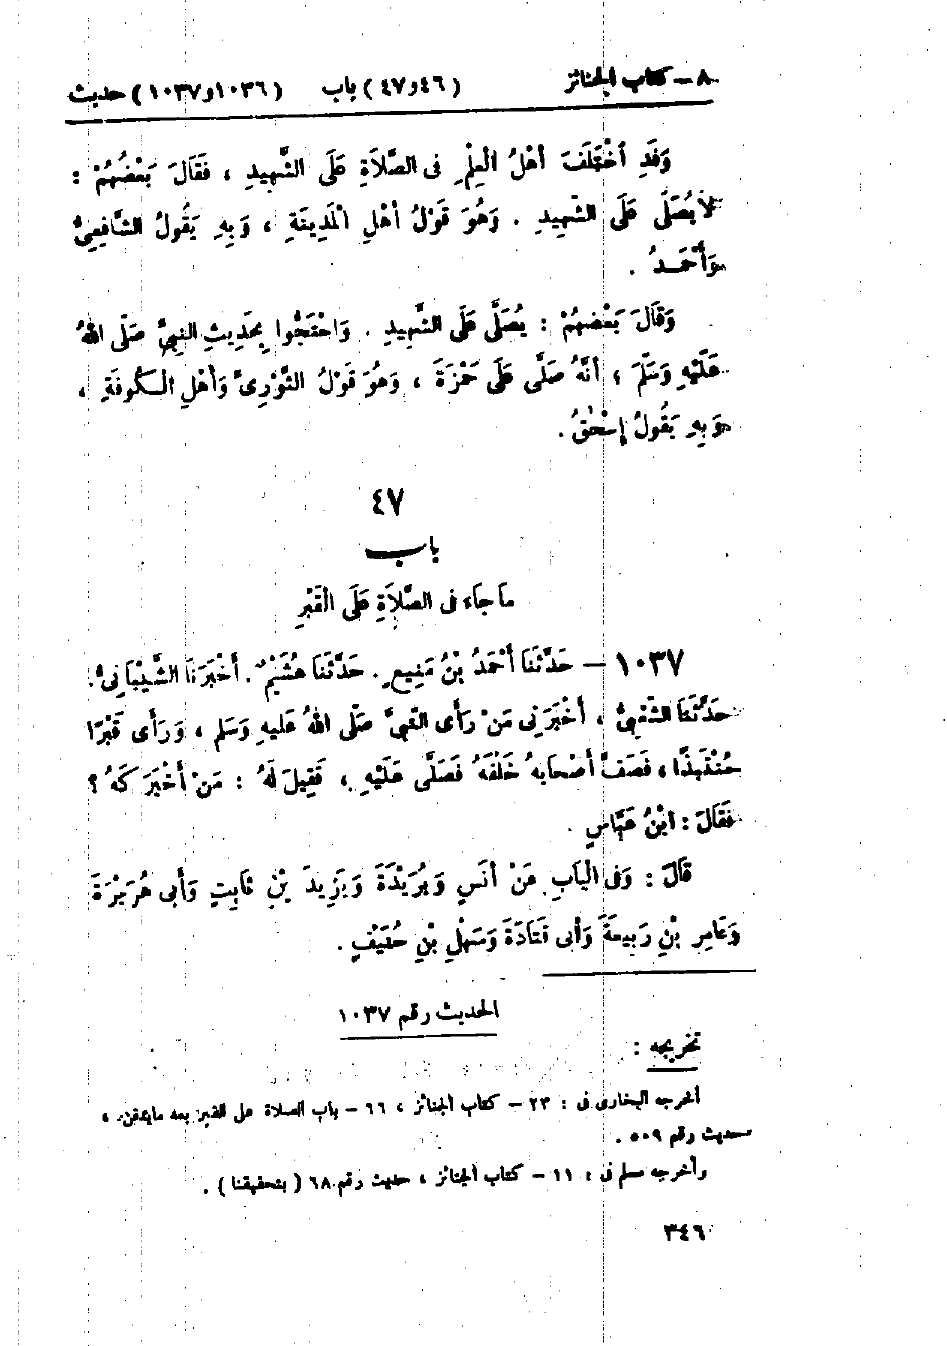 ٨ – كتاب الجنائز (٤٦ و ٤٧) باب (١٠٣٦ و ١٠٣٧) حديث
وَقَدِ اخْتَلَفَ أَهْلُ الْعِلْمِ فِى الصَّلَاةِ عَلَى الشَّهِيدِ ، فَقَالَ بَعْضُهُمْ :
لاَ يُصَلَّى عَلَى الشَّهِيدِ . وَهُوَ قَوْلُ أَهْلِ الْمَدِينَةِ ، وَبِهِ يَقُولُ الشَّافِعِىُّ
وَأَحْمَدُ .
وَقَالَ بَعْضُهُمْ : يُصَلَّى عَلَى الشَّهِيدِ . وَاحْتَجُّوا بِحَدِيثِ النَّبِىِّ صَلَّى اللهُ
عَلَيْهِ وَسَلَّمَ ، أَنَّهُ صَلَّى عَلَى حَمْزَةَ ، وَهُوَ قَوْلُ الثَّوْرِىِّ وَأَهْلِ الْكُوفَةِ ،
وَبِهِ يَقُولُ إِسْحٰقُ .
٤٧
باب
مَا جَاءَ فى الصَّلاَةِ عَلَى الْقَبْرِ
١٠٣٧ – حَدَّثَنَا أَحْمَدُ بْنُ مَنِيعٍ . حَدَّثَنَا هُشَيْمٌ . أَخْبَرَنَا الشَّيْبَانِىُّ .
حَدَّثَنَا الشَّعْبِىُّ ، أَخْبَرَنِى مَنْ رَأَى النَّبِىَّ صَلَّى اللهُ عَلَيهِ وَسَلم ، وَرَأَى قَبْرًا
مُنْتَبِذًا ، فَصَفَّ أَصْحَابهُ خَلْفَهُ فَصَلَّى عَلَيْهِ ، فَقِيلَ لَهُ : مَنْ أَخْبَرَكَهُ ؟
فَقَالَ : ابْنُ عَبَّاسٍ .
قَالَ : وَفى الْبَابِ عَنْ أَنَسٍ وَبُرَيْدَةَ وَيَزِيدَ بْنِ ثَابِتٍ وَأَبِى هُرَيْرَةَ
وَعَامِرِ بْنِ رَبِيعَةَ وَأَبِى قَتَادَةَ وَسَهْلِ بْنِ حُنَيْفٍ .
الحديث رقم ١٠٣٧
تخريجه :
أخرجه البخارى فى : ٢٣ – كتاب الجنائز ، ٦٦ – باب الصلاة على القبر بعد مايدفن ،
حديث رقم ٥٠٩ .
وأخرجه مسلم فى : ١١ – كتاب الجنائز ، حديث رقم ٦٨ ( بتحقيقنا ) .
٣٤٦